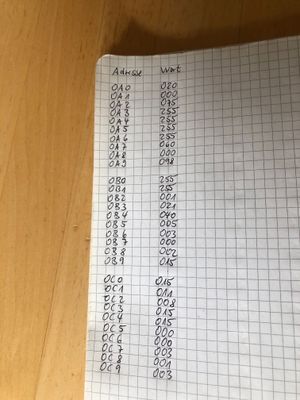 Adresse Wert
0A0 020
0A1 000
0A2 075
0A3 255
0A4 255
0A5 255
0A6 255
0A7 060
0A8 000
0A9 098
0B0 255
0B1 255
0B2 001
0B3 021
0B4 040
0B5 005
0B6 003
0B7 000
0B8 002
0B9 015
0C0 015
0C1 011
0C2 008
0C3 015
0C4 015
0C5 000
0C6 000
0C7 003
0C8 001
0C9 003